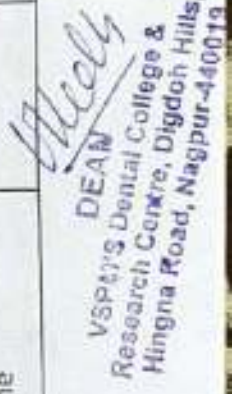 DEAN
VSPM'S Dental College &
Research Centre, Digdoh Hills
Hingna Road, Nagpur-440019